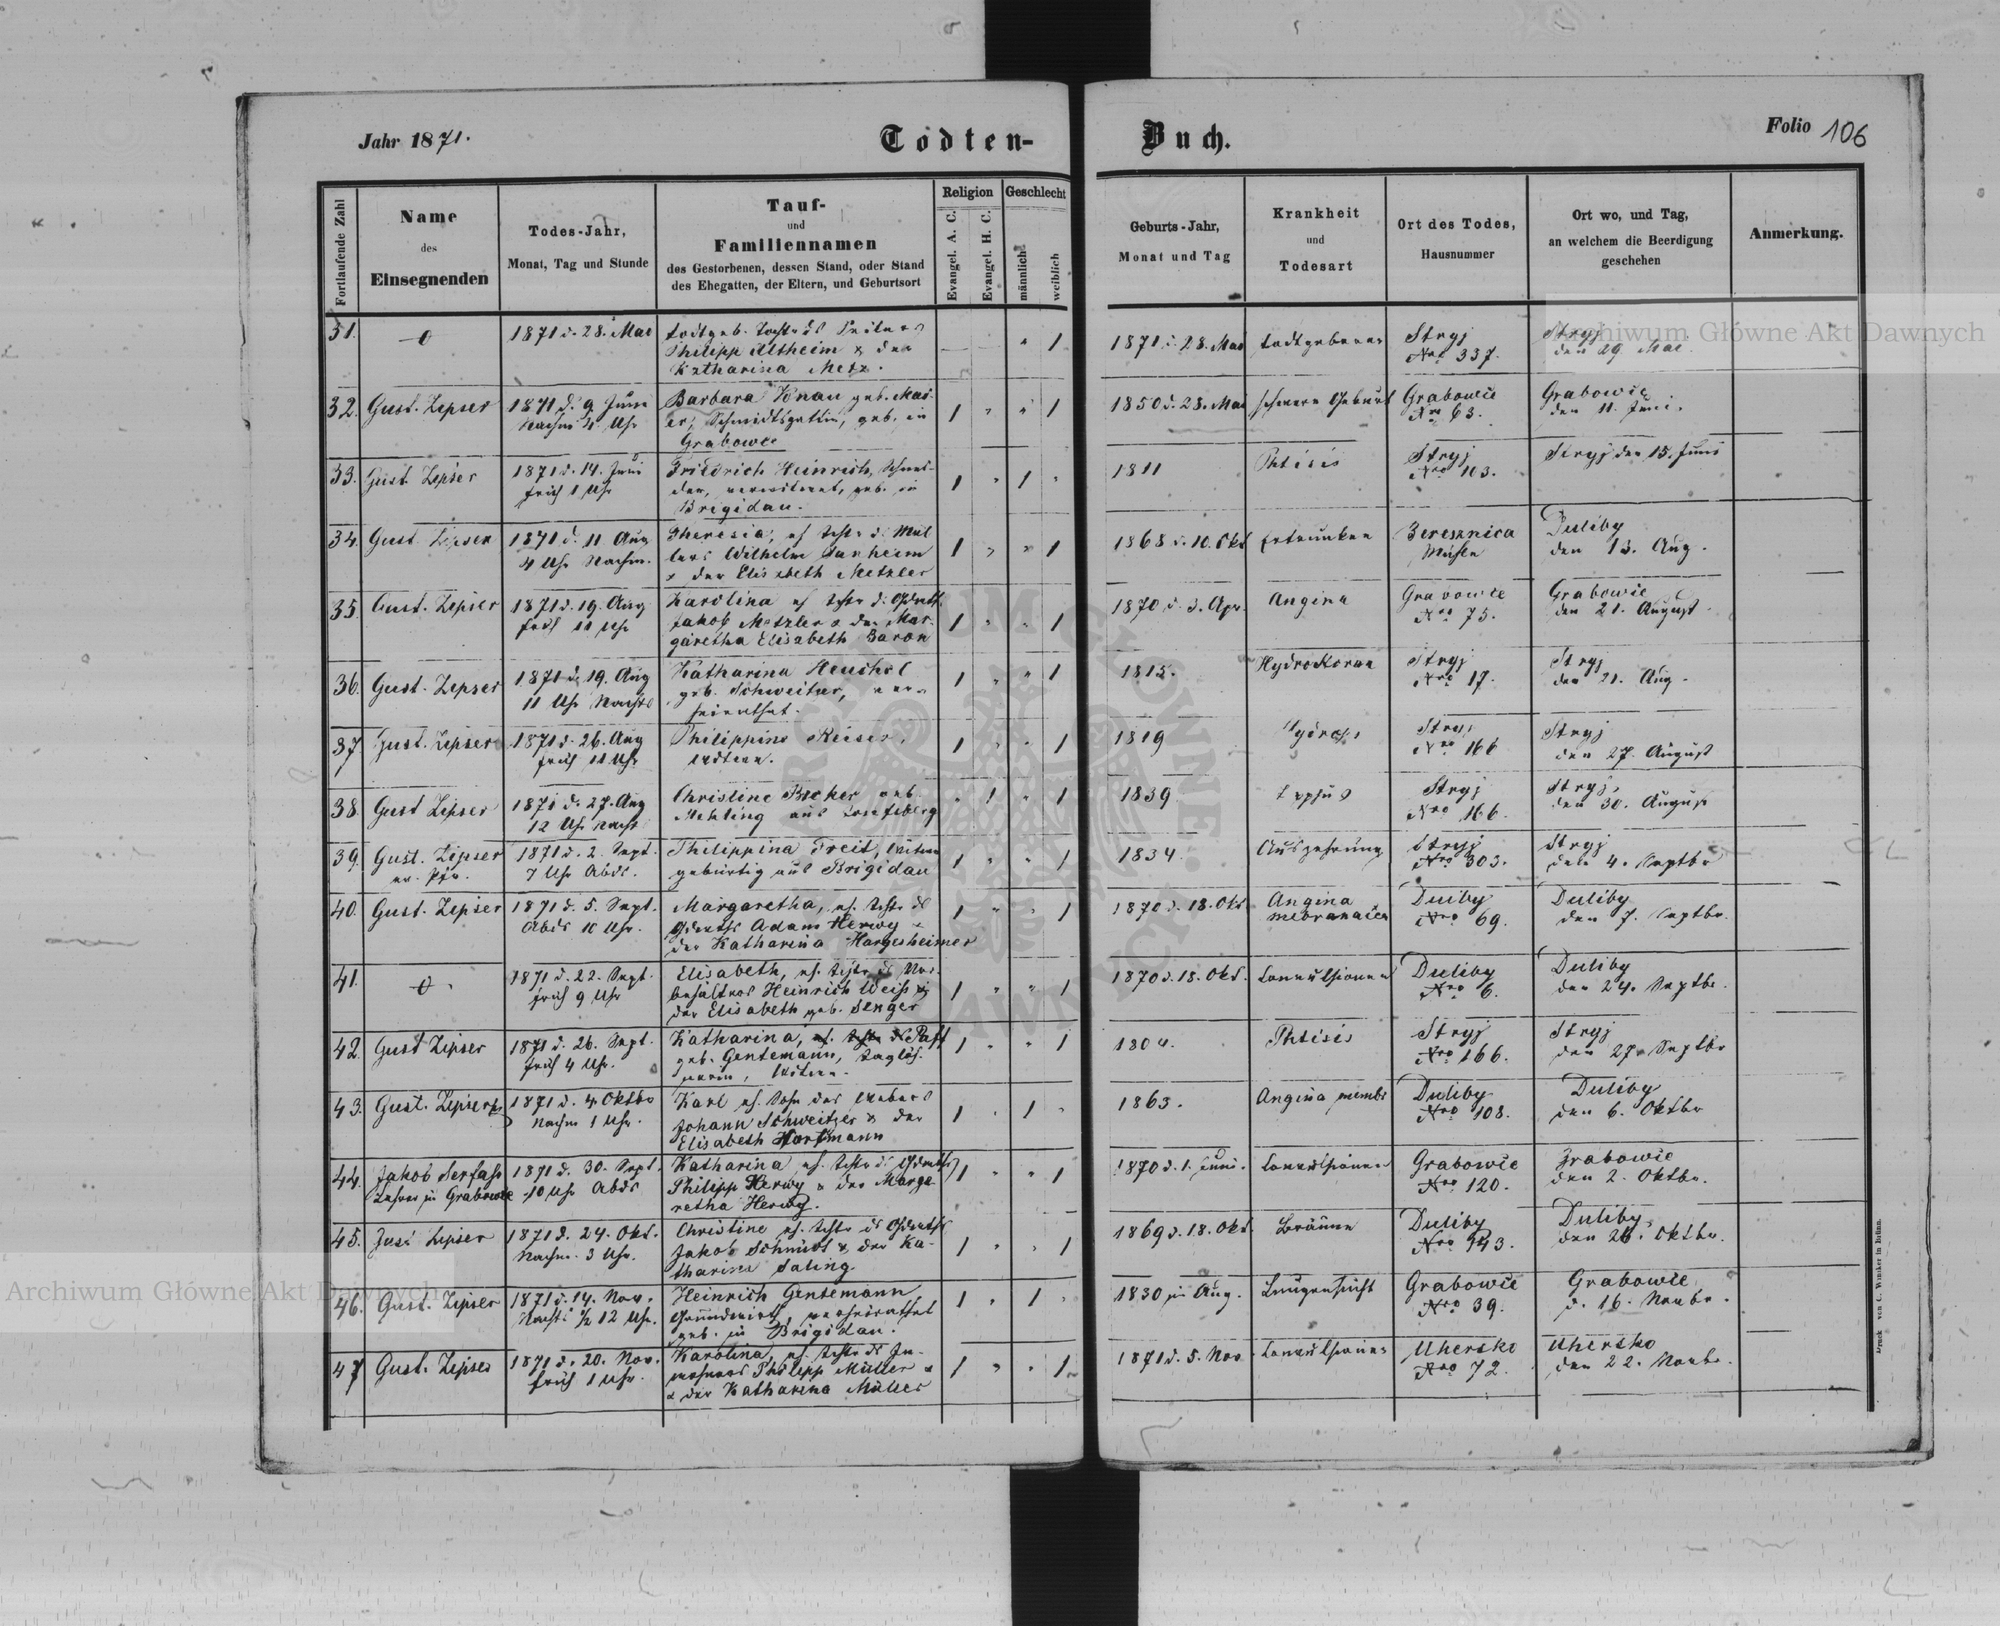 Jahr 1871.
Todten-Buch.
Folio 106
Fortlaufende Zahl
Name
des
Einsegnenden
Todes-Jahr,
Monat, Tag und Stunde
Tauf-
und
Familiennamen
des Gestorbenen, dessen Stand, oder Stand
des Ehegatten, der Eltern, und Geburtsort
Religion
Evangel. A. C.
Evangel. H. C.
Geschlecht
männlich
weiblich
Geburts-Jahr,
Monat und Tag
Krankheit
und
Todesart
Ort des Todes,
Hausnummer
Ort wo, und Tag,
an welchem die Beerdigung
geschehen
Anmerkung.
31.
1871 d. 28. Mai
todtgeb. Tochter des
Philipp Altheim & der
Katharina Metz.
1871 d. 28. Mai
todtgeboren
Stryj
Nro 337.
Stryj
den 29 Mai.
32.
Gust. Zipser
1871 d. 9 Juni
Nachm 4 Uhr
Barbara Knau geb. Mai-
er, Schmidtsgattin, geb. in
Grabowce
1850 d. 28. Mai
schwere Geburt
Grabowce
Nro 63.
Grabowce
den 11. Juni.
33.
Gust Zipser
1871 d. 14. Juni
früh 1 Uhr
Friedrich Heinrich, Schnei-
der, verwitwet, geb. in
Brigidau.
1811
Phtisis
Stryj
Nro 113.
Stryj den 15. Juni
34.
Gust Zipser
1871 d. 11 Aug
4 Uhr Nachm.
Theresia, eh. Tchtr d. Mül
lers Wilhelm Manheim
& der Elisabeth Metzler
1868 d. 10. Okt
Ertrunken
Beresznica
Mühle
Duliby
den 13. Aug.
35.
Gust. Zipser
1871 d. 19. Aug
früh 11 Uhr
Karolina eh Tchtr d. Gdwths
Jakob Metzler & der Mar-
garetha Elisabeth Baron
1870 d. 3. Apr.
Angina
Grabowce
Nro 75.
Grabowce
den 21. August.
36.
Gust. Zipser
1871 d. 19. Aug
11 Uhr Nachts
Katharina Heuchel
geb. Schweitzer, ver-
heirathet.
1815.
Stryj
Nro 17.
Stryj
den 21. Aug.
37.
Gust. Zipser
1871 d. 26. Aug
früh 11 Uhr
Philippine Reiser,
Witwe.
1819
Hydrops
Stryj
Nro 166
Stryj
den 27. August
38.
Gust Zipser
1871 d. 27. Aug
12 Uhr Nacht
Christine Becker geb.
Mehling aus Josefsberg
1839
Typhus
Stryj
Nro 166.
Stryj,
den 30. August
39.
Gust. Zipser
ev. Pfr.
1871 d. 2. Sept.
7 Uhr Abds.
Philippina Freit, Witwe
gebürtig aus Brigidau
1834.
Auszehrung
Stryj
Nro 303.
Stryj
den 4. Septbr
40.
Gust. Zipser
1871 d. 5. Sept.
Abds 10 Uhr.
Margaretha, eh. Tchtr ds
Gdwths Adam Herwy &
der Katharina Hargesheimer
1870 d. 18. Okt.
Angina
Duliby
Nro 69.
Duliby
den 7. Septbr.
41.
1871 d. 22. Sept.
früh 9 Uhr
Elisabeth, eh. Tchtr ds
Heinrich Weiß &
der Elisabeth geb. Senger
1870 d. 18. Okt.
Convulsionen
Duliby
Nro 6.
Duliby
den 24. Septbr.
42.
Gust Zipser
1871 d. 26. Sept.
früh 4 Uhr.
Katharina, eh. Tchtr ds Paff
geb. Gentemann, Taglöh-
nerin, Witwe.
1804.
Phtisis
Stryj
Nro 166.
Stryj
den 27. Septbr
43.
Gust. Zipser
1871 d. 4. Oktbr
Nachm 1 Uhr.
Karl eh. Sohn des Webers
Johann Schweitzer & der
Elisabeth Hartmann
1863.
Angina membr
Duliby
Nro 108.
Duliby
den 6. Oktbr
44.
Jakob Serfass
Lehrer zu Grabowce
1871 d. 30. Sept.
10 Uhr Abds
Katharina eh. Tchtr ds Gdwths
Philipp Herwy & der Marga-
retha Herwy.
1870 d. 1. Juni.
Convulsionen
Grabowce
Nro 120.
Grabowce
den 2. Oktbr.
45.
Gust Zipser
1871 d. 24. Okt.
Nachm. 3 Uhr.
Christine eh. Tchtr ds Gdwths
Jakob Schmidt & der Ka-
tharina Saling
1869 d. 18. Okt.
Bräune
Duliby
Nro 143.
Duliby,
den 26. Oktbr.
46.
Gust. Zipser
1871 d. 14. Nov.
Nachts ½ 12 Uhr.
Heinrich Gentemann
Grundwirth, verheirathet
geb. in Brigidau.
1830 im Aug.
Lungensucht
Grabowce
Nro 39.
Grabowce
d. 16. Novbr.
47
Gust. Zipser
1871 d. 20. Nov.
früh 1 Uhr.
Karolina, eh. Tchtr ds In-
wohners Philipp Müller &
& der Katharina Müller
1871 d. 5. Nov
Convulsionen
Uhersko
Nro 72.
Uhersko
den 22. Novbr.
Druck von C. Winiker in Brünn.
Archiwum Główne Akt Dawnych
Archiwum Główne Akt Dawnych
ARCHIWUM GŁÓWNE AKT DAWNYCH